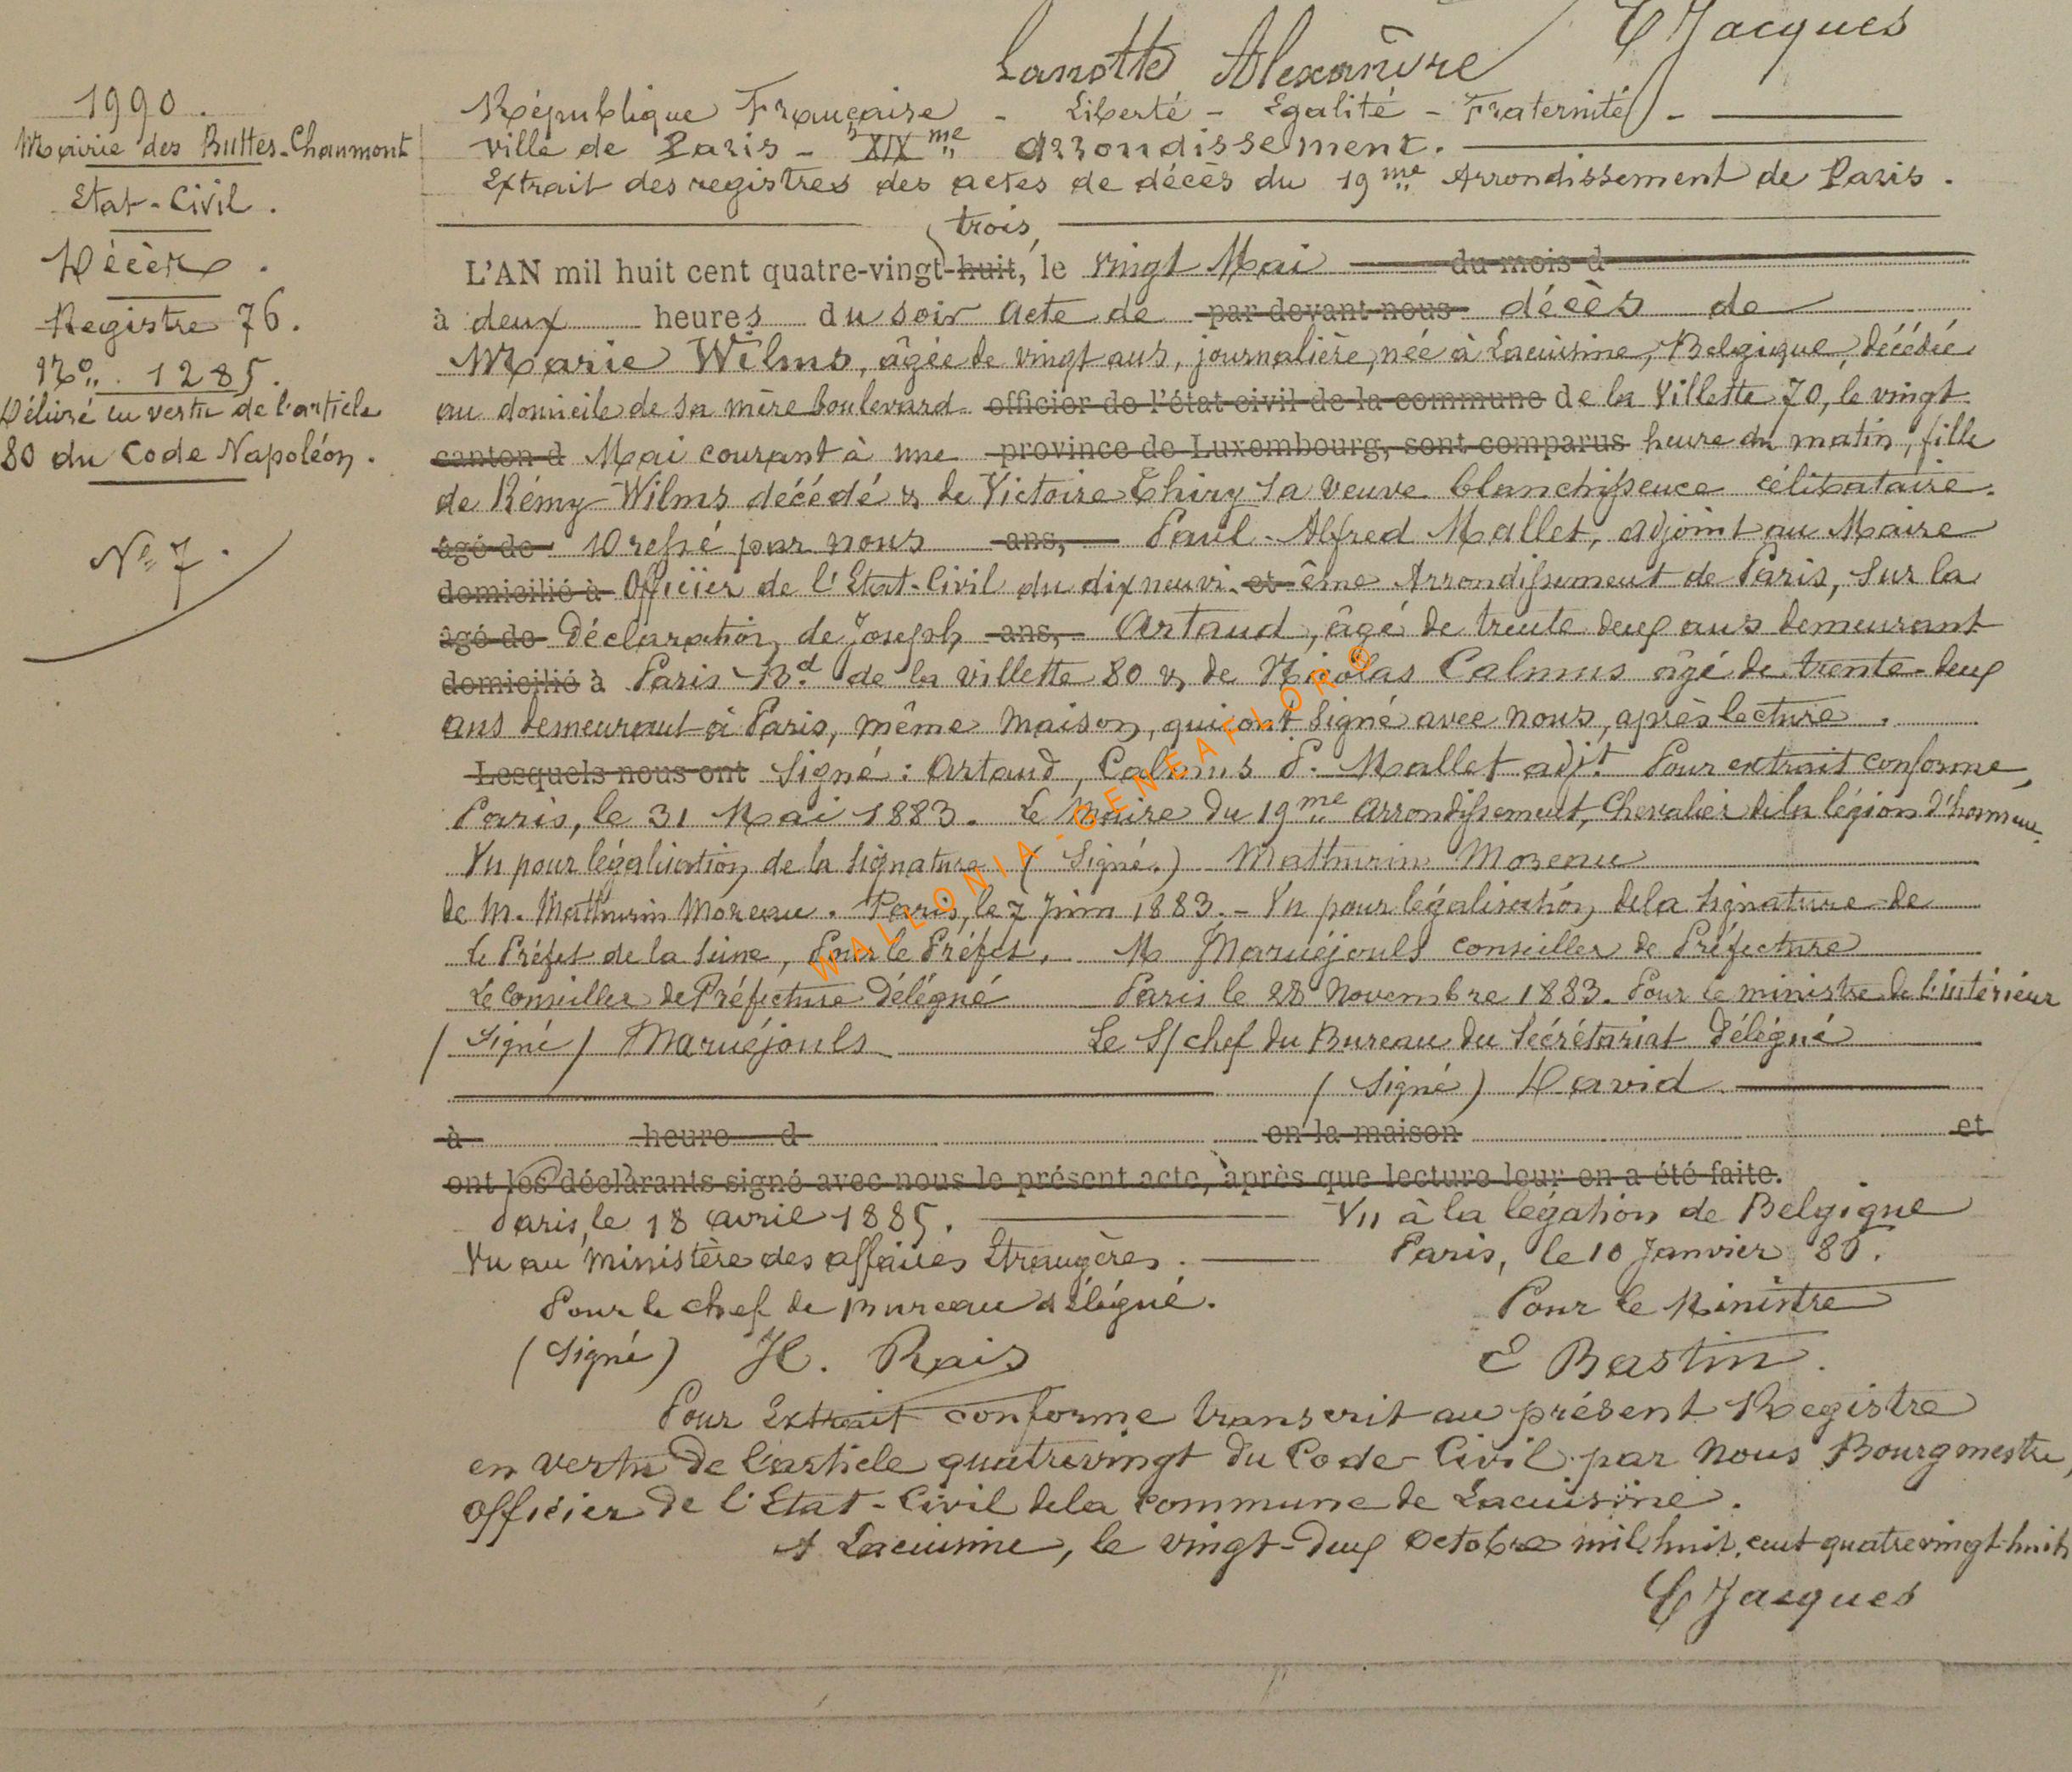 Lanotte Alexandre CJacques
1990.
Mairie des Buttes-Chaumont
Etat-Civil.
Décès.
Registre 76.
No. 1285.
Délivré en vertu de l'article
80 du Code Napoléon.
No 7.
République Française - Liberté - Egalité - Fraternité -
Ville de Paris - XIXme Arrondissement.
Extrait des registres des actes de décès du 19me Arrondissement de Paris.
trois,
L'AN mil huit cent quatre-vingt-huit, le vingt Mai du mois d
à deux heures du soir acte de par devant nous décès de
Marie Wilms, âgée de vingt ans, journalière, née à Lacuisine, Belgique, décédée
au domicile de sa mère boulevard officier de l'état civil de la commune de la Villette 70, le vingt
canton d Mai courant à une province de Luxembourg, sont comparus heure du matin, fille
de Rémy Wilms décédé & de Victoire Thiry sa veuve blanchisseuce célibataire.
âgé de Dressé par nous ans, Paul-Alfred Mallet, adjoint au Maire
domicilié à Officier de l'Etat-Civil du dix neuvi- et ême Arrondissement de Paris, sur la
âgé de Déclaration de Joseph ans, Artaud, âgé de trente deux ans demeurant
domicilié à Paris Bd de la villette 80 & de Nicolas Calmus âgé de trente-deux
ans demeurant à Paris, même maison, qui ont signé avec nous, après lecture.
Lesquels nous ont Signé: Artaud, Calmus P. Mallet adjt Pour extrait conforme,
Paris, le 31 Mai 1883. Le Maire du 19me arrondissement, Chevalier de la légion d'honneur
Vu pour légalisation de la signature (Signé.) Mathurin Moreau
de M. Mathurin Moreau. Paris, le 7 Juin 1883. - Vu pour légalisation de la signature de
le Préfet de la Seine, Pour le Préfet, M Maruéjouls conseiller de Préfecture
Le Conseiller de Préfecture Délégué Paris le 28 Novembre 1883. Pour le ministre de l'intérieur
(Signé) Maruéjouls Le S/chef du Bureau du Secrétariat Délégué
(Signé) David
à heure d en la maison et
ont les déclarants signé avec nous le présent acte, après que lecture leur en a été faite.
Paris, le 18 avril 1885. Vu à la légation de Belgique
Vu au Ministère des affaires Etrangères. Paris, le 10 Janvier 85.
Pour le chef de bureau délégué. Pour le Ministre
(Signé) H. Rais E Bastin.
Pour Extrait conforme transcrit au présent Registre
en vertu de l'article quatrevingt du Code-Civil par nous Bourgmestre,
officier de l'Etat-Civil de la commune de Lacuisine.
A Lacuisine, le vingt-deux octobre mil huit cent quatrevingt-huit
CJacques
WALLONIA-GENEAFLOR©